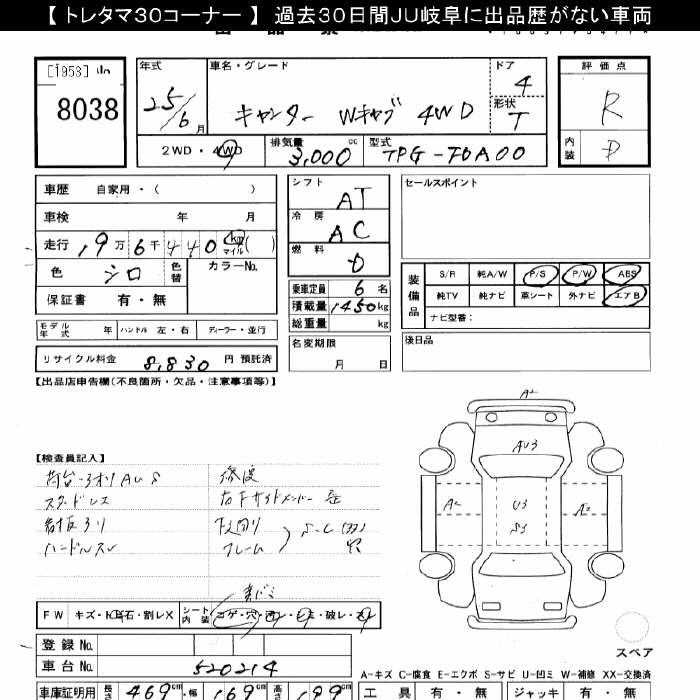 【 トレタマ30コーナー 】 過去30日間JU岐阜に出品歴がない車両
[1953]
8038
年式
25/6月
車名・グレード
キャンター Wキャブ 4WD
ドア
4
形状
T
評価点
R
内装
D
2WD・4WD
排気量
3,000cc
型式
TPG-FDA00
車歴 自家用・( )
車検 年 月
走行 19万6千440km(マイル)
色 シロ 色替
カラーNo.
保証書 有・無
モデル年式 年 ハンドル 左・右 ディーラー・並行
リサイクル料金 8,830円 預託済
シフト
AT
冷房
AC
燃料
D
乗車定員 6名
積載量 1450kg
総重量 kg
名変期限
月 日
セールスポイント
装備品
S/R 純A/W P/S P/W ABS
純TV 純ナビ 革シート 外ナビ エアB
ナビ型番:
後日品
【出品店申告欄(不良箇所・欠品・注意事項等)】
【検査員記入】
荷台・3オリAUS
スタッドレス
ハンドルスレ
下回り
フレーム
S-C
穴
A2
AU3
A2
U3
S3
A2
FW キズ・トビ石・割レX シート内装 コゲ・穴
破レ
登録No.
車台No. 520214
スペア
A-キズ C-腐食 E-エクボ S-サビ U-凹ミ W-補修 XX-交換済
車庫証明用 長さ 469cm・幅 169cm 高さ 199cm
工具 有・無 ジャッキ 有・無